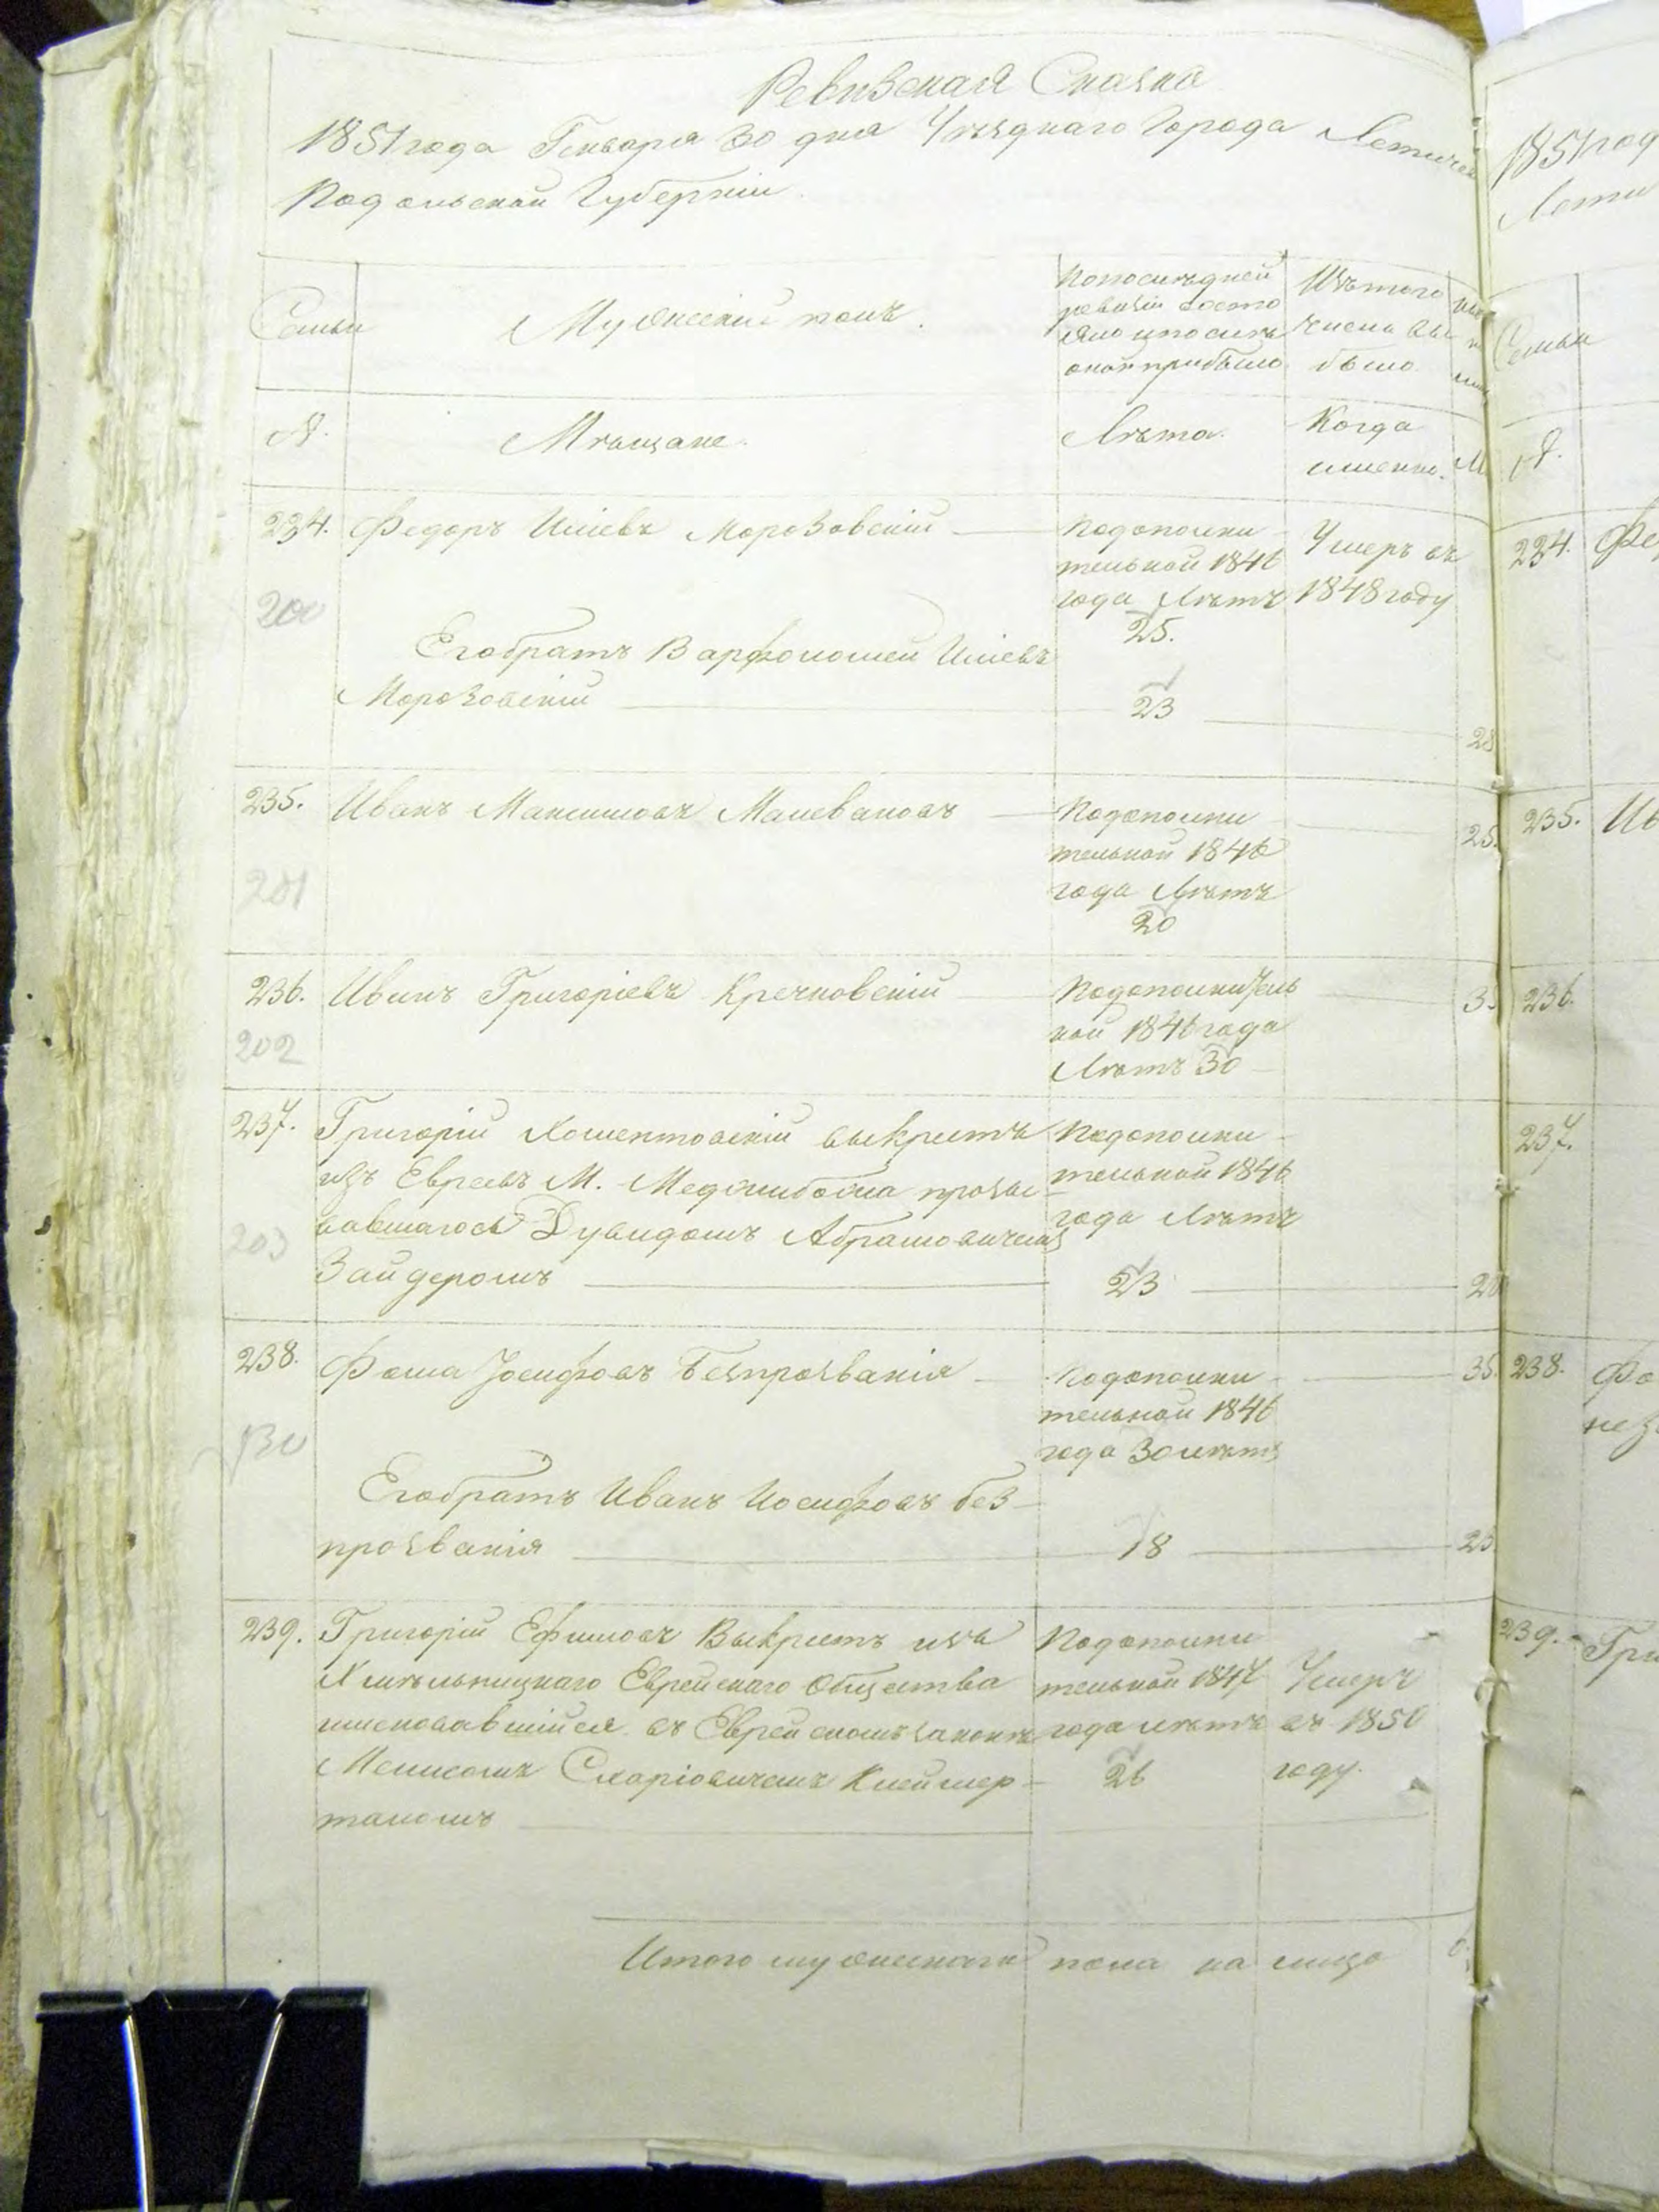 Ревизская Сказка
1851 года Генваря 30 дня Уезднаго Города Летичев
Подольской Губерніи.
Семьи
Мужескій полъ.
По последней
ревизіи состо
яло и после
оной прибыло
Изъ того
числа вы
было
№.
Мѣщане.
Лѣта.
Когда
именно.
234. Федоръ Иліевъ Морозовскій
По дополни
тельной 1846
года Лѣтъ
25.
Умеръ въ
1848 году
200
Его братъ Варфоломей Иліевъ
Морозовскій
23
28
235. Иванъ Максимовъ Малевановъ
По дополни
тельной 1846
года Лѣтъ
20
25.
201
236. Иванъ Григоріевъ Кречковскій
По дополнитель
ной 1846 года
Лѣтъ 30
202
237. Григорій Хоментовскій выкрестъ
изъ Евреевъ М. Меджибожа прозы
вавшагося Дувидомъ Абрамовичемъ
Зайдеромъ
По дополни
тельной 1846
года Лѣтъ
23
203
238. Фома Іосифовъ Безпрозванія
По дополни
тельной 1846
года 30 лѣтъ
35.
130
Его братъ Иванъ Иосифовъ без
прозванія
18
239. Григорій Ефимовъ Выкрестъ изъ
Хмѣльницкаго Еврейскаго Общества
именовавшійся въ Еврейскомъ законѣ
Клеймер
маномъ
По дополни
тельной 1847
года лѣтъ
26
Умеръ
въ 1850
году.
Итого мужескаго пола на лицо
1851 год
Лети
Семьи
№.
234. Фе
235. Ив
236.
237.
238. Фо
239. Гри